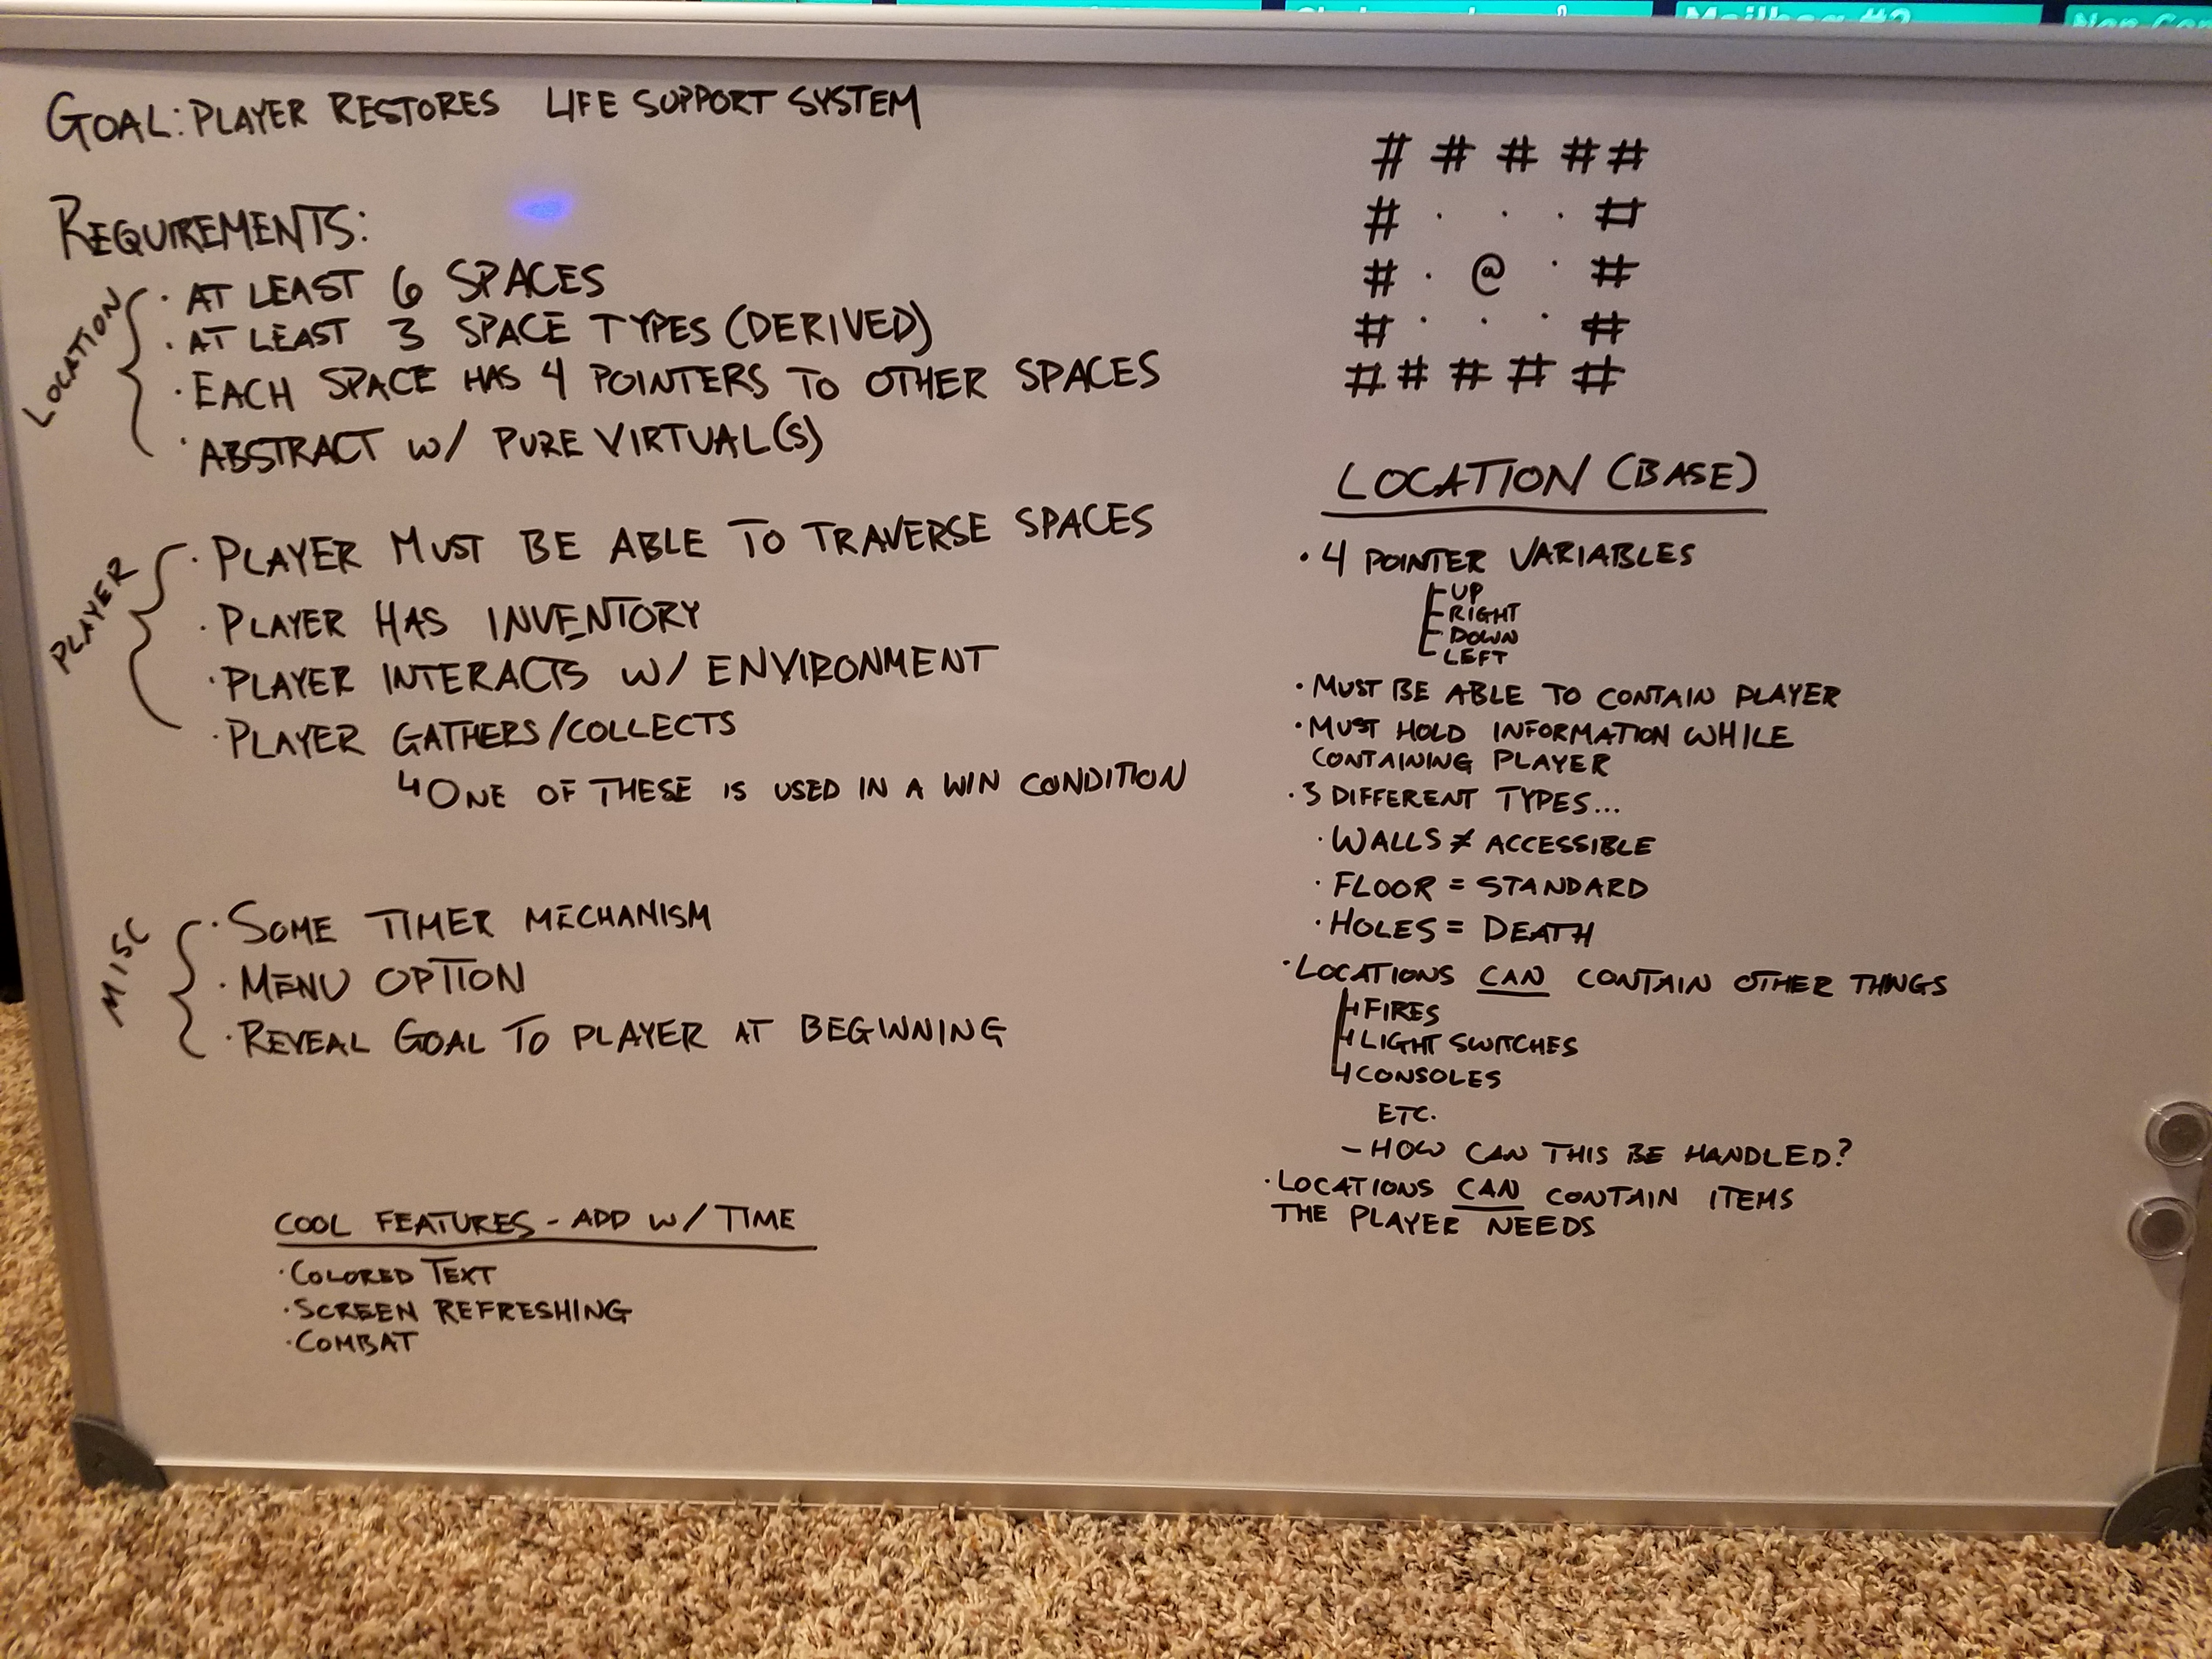 Mailbag #2
GOAL: PLAYER RESTORES LIFE SUPPORT SYSTEM
REQUIREMENTS:
LOCATION
· AT LEAST 6 SPACES
· AT LEAST 3 SPACE TYPES (DERIVED)
· EACH SPACE HAS 4 POINTERS TO OTHER SPACES
· ABSTRACT W/ PURE VIRTUAL(S)
PLAYER
· PLAYER MUST BE ABLE TO TRAVERSE SPACES
· PLAYER HAS INVENTORY
· PLAYER INTERACTS W/ ENVIRONMENT
· PLAYER GATHERS/COLLECTS
↳ ONE OF THESE IS USED IN A WIN CONDITION
MISC
· SOME TIMER MECHANISM
· MENU OPTION
· REVEAL GOAL TO PLAYER AT BEGINNING
COOL FEATURES - ADD W/ TIME
· COLORED TEXT
· SCREEN REFRESHING
· COMBAT
# # # # #
# · · · #
# · @ · #
# · · · #
# # # # #
LOCATION (BASE)
· 4 POINTER VARIABLES
UP
RIGHT
DOWN
LEFT
· MUST BE ABLE TO CONTAIN PLAYER
· MUST HOLD INFORMATION WHILE
CONTAINING PLAYER
· 3 DIFFERENT TYPES...
· WALLS ≠ ACCESSIBLE
· FLOOR = STANDARD
· HOLES = DEATH
· LOCATIONS CAN CONTAIN OTHER THINGS
↳ FIRES
↳ LIGHT SWITCHES
↳ CONSOLES
ETC.
- HOW CAN THIS BE HANDLED?
· LOCATIONS CAN CONTAIN ITEMS
THE PLAYER NEEDS